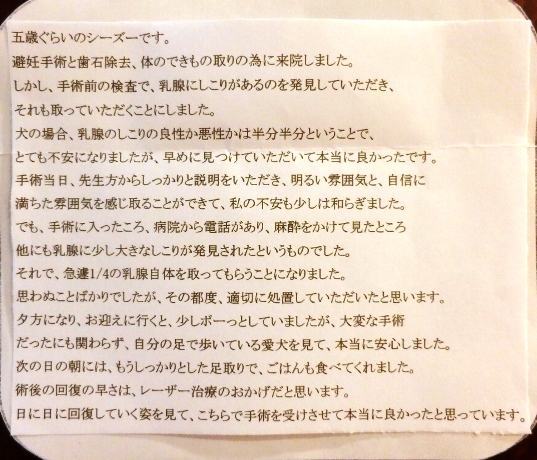 五歳ぐらいのシーズーです。
避妊手術と歯石除去、体のできもの取りの為に来院しました。
しかし、手術前の検査で、乳腺にしこりがあるのを発見していただき、
それも取っていただくことにしました。
犬の場合、乳腺のしこりの良性か悪性かは半分半分ということで、
とても不安になりましたが、早めに見つけていただいて本当に良かったです。
手術当日、先生方からしっかりと説明をいただき、明るい雰囲気と、自信に
満ちた雰囲気を感じ取ることができて、私の不安も少しは和らぎました。
でも、手術に入ったころ、病院から電話があり、麻酔をかけて見たところ
他にも乳腺に少し大きなしこりが発見されたというものでした。
それで、急遽1/4の乳腺自体を取ってもらうことになりました。
思わぬことばかりでしたが、その都度、適切に処置していただいたと思います。
夕方になり、お迎えに行くと、少しボーっとしていましたが、大変な手術
だったにも関わらず、自分の足で歩いている愛犬を見て、本当に安心しました。
次の日の朝には、もうしっかりとした足取りで、ごはんも食べてくれました。
術後の回復の早さは、レーザー治療のおかげだと思います。
日に日に回復していく姿を見て、こちらで手術を受けさせて本当に良かったと思っています。